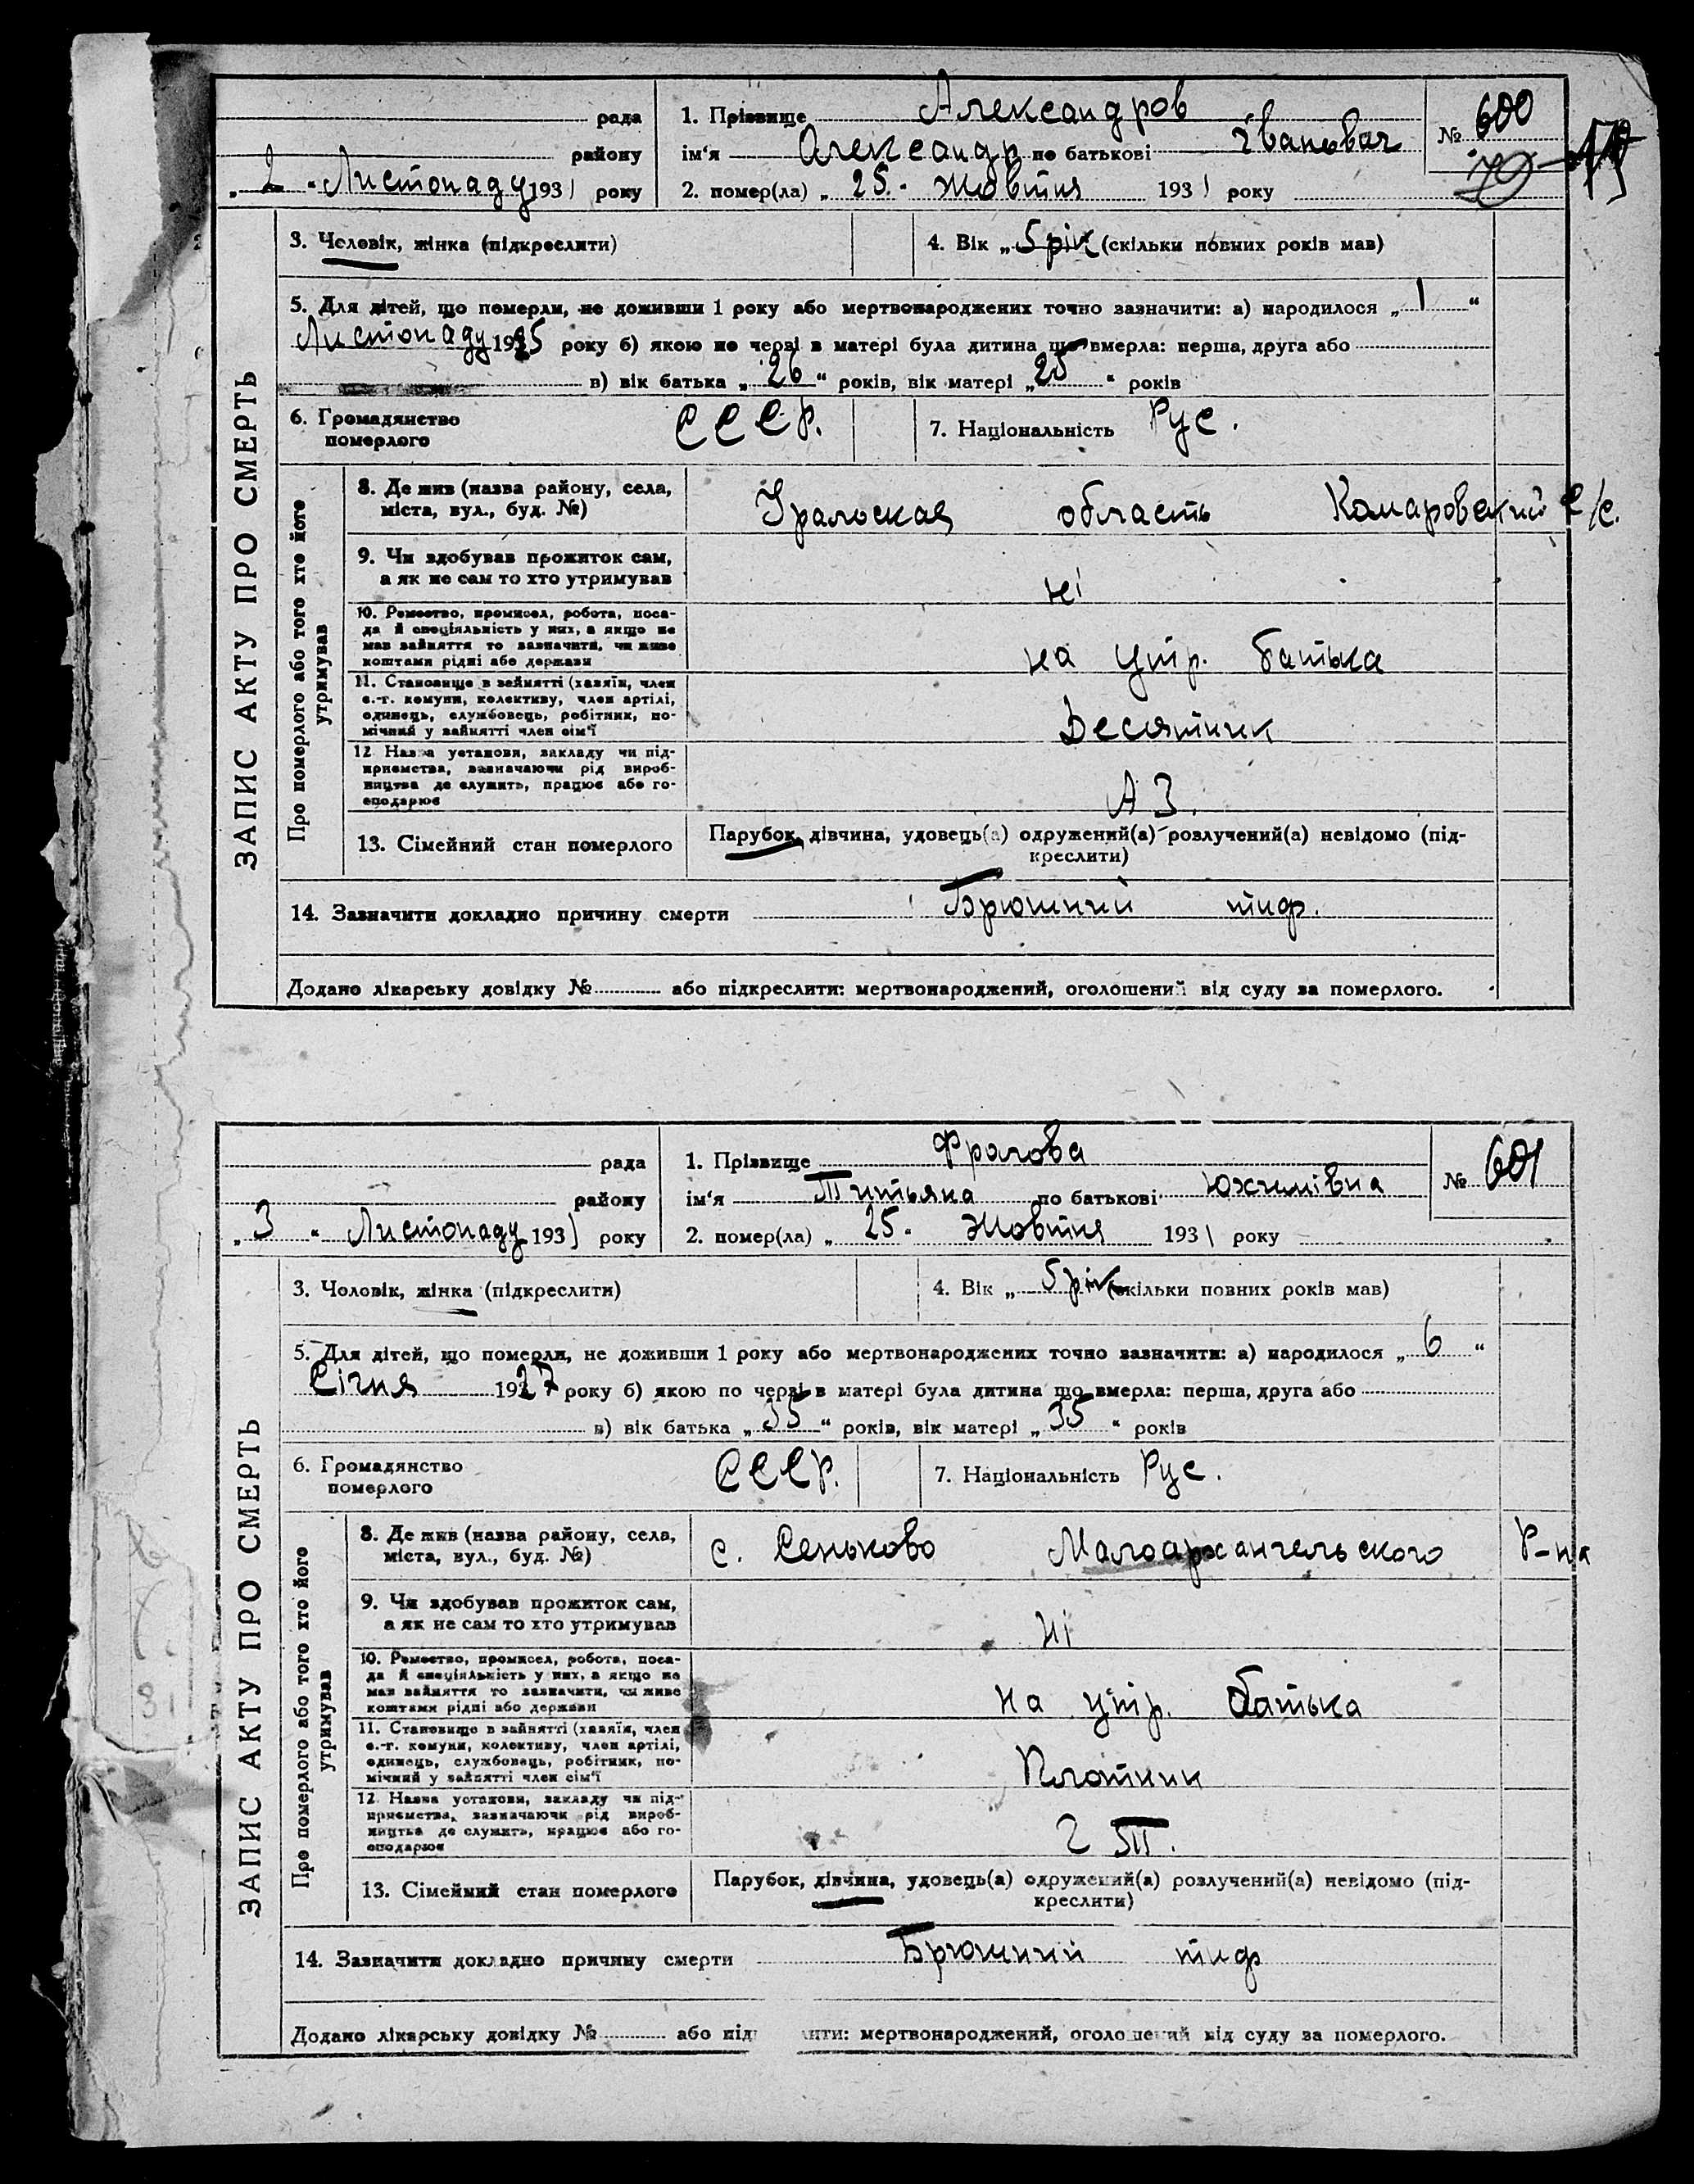 рада
1. Прізвище Александров
№ 600
району
ім'я Александр по батькові Іванович
„ 2 “ Листопаду 1931 року
2. помер(ла) „ 25 “ жовтня 1931 року
3. Чоловік, жінка (підкреслити)
4. Вік „ 5 рік (скільки повних років мав)
5. Для дітей, що померли, не доживши 1 року або мертвонароджених точно зазначити: а) народилося „ 1 “
Листопаду 1925 року б) якою по черзі в матері була дитина що вмерла: перша, друга або
в) вік батька „ 26 “ років, вік матері „ 25 “ років
6. Громадянство
померлого
СССР.
7. Національність Рус.
ЗАПИС АКТУ ПРО СМЕРТЬ
Про померлого або того хто його
утримував
8. Де жив (назва району, села,
міста, вул., буд. №)
Уральская область Комаровский с/с.
9. Чи здобував прожиток сам,
а як не сам то хто утримував
ні
10. Ремество, промисел, робота, поса-
да й спеціяльність у них, а якщо не
мав зайняття то зазначити, чи живе
коштами рідні або держави
на утр. батька
11. Становище в зайнятті (хазяїн, член
с.-г. комуни, колективу, член артілі,
одинець, службовець, робітник, по-
мічний у зайнятті член сім'ї
Десятник
12 Назва установи, закладу чи під-
приємства, зазначаючи рід вироб-
ництва де служить, працює або го-
сподарює
А З.
13. Сімейний стан померлого
Парубок, дівчина, удовець(а) одружений(а) розлучений(а) невідомо (під-
креслити)
14. Зазначити докладно причину смерти Брюшний тиф.
Додано лікарську довідку № або підкреслити: мертвонароджений, оголошений від суду за померлого.
рада
1. Прізвище Фролова
№ 601
району
ім'я Титьяна по батькові Юхимівна
„ 3 “ Листопаду 1931 року
2. помер(ла) „ 25 “ Жовтня 1931 року
3. Чоловік, жінка (підкреслити)
4. Вік „ 5 рік (скільки повних років мав)
5. Для дітей, що померли, не доживши 1 року або мертвонароджених точно зазначити: а) народилося „ 6 “
Січня 1927 року б) якою по черзі в матері була дитина що вмерла: перша, друга або
в) вік батька „ 35 “ років, вік матері „ 35 “ років
6. Громадянство
померлого
СССР.
7. Національність Рус.
ЗАПИС АКТУ ПРО СМЕРТЬ
Про померлого або того хто його
утримував
8. Де жив (назва району, села,
міста, вул., буд. №)
с. Сеньково Малоархангельского Р-на
9. Чи здобував прожиток сам,
а як не сам то хто утримував
Ні
10. Ремество, промисел, робота, поса-
да й спеціяльність у них, а якщо не
мав зайняття то зазначити, чи живе
коштами рідні або держави
на утр. батька
11. Становище в зайнятті (хазяїн, член
с.-г. комуни, колективу, член артілі,
одинець, службовець, робітник, по-
мічний у зайнятті член сім'ї
Плотник
12 Назва установи, закладу чи під-
приємства, зазначаючи рід вироб-
ництва де служить, працює або го-
сподарює
13. Сімейний стан померлого
Парубок, дівчина, удовець(а) одружений(а) розлучений(а) невідомо (під-
креслити)
14. Зазначити докладно причину смерти Брюшний тиф
Додано лікарську довідку № або підкреслити: мертвонароджений, оголошений від суду за померлого.